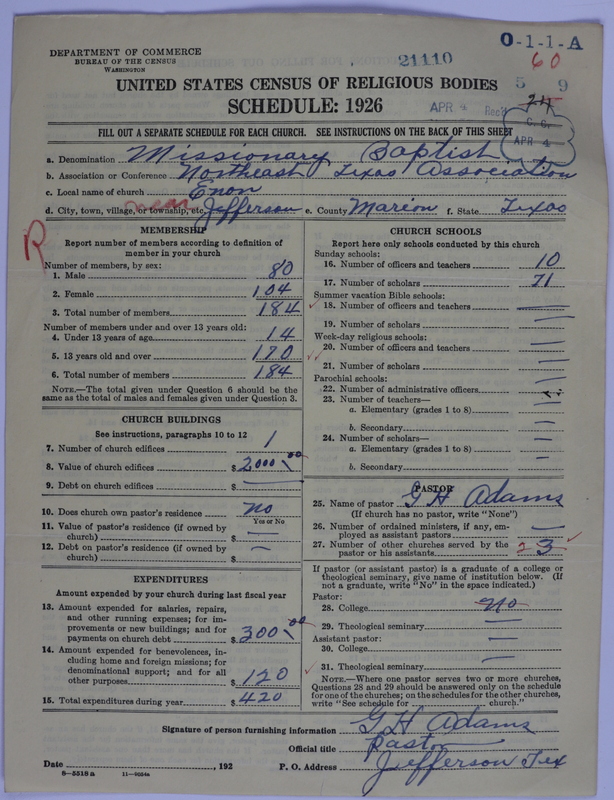 DEPARTMENT OF COMMERCE
BUREAU OF THE CENSUS
WASHINGTON
21110
O-1-1-A
60
5 9
UNITED STATES CENSUS OF RELIGIOUS BODIES
SCHEDULE: 1926
APR 4 Rec'd
C. C.
APR 4
FILL OUT A SEPARATE SCHEDULE FOR EACH CHURCH. SEE INSTRUCTIONS ON THE BACK OF THIS SHEET
a. Denomination Missionary Baptist
b. Association or Conference Northeast Texas Association
c. Local name of church Enon
d. City, town, village, or township, etc. near Jefferson e. County Marion f. State Texas
R
MEMBERSHIP
Report number of members according to definition of
member in your church
Number of members, by sex:
1. Male 80
2. Female 104
3. Total number of members 184
Number of members under and over 13 years old:
4. Under 13 years of age 14
5. 13 years old and over 170
6. Total number of members 184
NOTE.—The total given under Question 6 should be the
same as the total of males and females given under Question 3.
CHURCH BUILDINGS
See instructions, paragraphs 10 to 12
7. Number of church edifices 1
8. Value of church edifices $ 2000 00
9. Debt on church edifices $ —
10. Does church own pastor's residence no
Yes or No
11. Value of pastor's residence (if owned by
church) $ —
12. Debt on pastor's residence (if owned by
church) $ —
EXPENDITURES
Amount expended by your church during last fiscal year
13. Amount expended for salaries, repairs,
and other running expenses; for im-
provements or new buildings; and for
payments on church debt $ 300 00
14. Amount expended for benevolences, in-
cluding home and foreign missions; for
denominational support; and for all
other purposes $ 120
15. Total expenditures during year $ 420
CHURCH SCHOOLS
Report here only schools conducted by this church
Sunday schools:
16. Number of officers and teachers 10
17. Number of scholars 71
Summer vacation Bible schools:
18. Number of officers and teachers —
19. Number of scholars —
Week-day religious schools:
20. Number of officers and teachers —
21. Number of scholars —
Parochial schools:
22. Number of administrative officers
23. Number of teachers—
a. Elementary (grades 1 to 8) —
b. Secondary —
24. Number of scholars—
a. Elementary (grades 1 to 8) —
b. Secondary —
PASTOR
25. Name of pastor G H Adams
(If church has no pastor, write "None")
26. Number of ordained ministers, if any, em-
ployed as assistant pastors —
27. Number of other churches served by the
pastor or his assistants 3
If pastor (or assistant pastor) is a graduate of a college or
theological seminary, give name of institution below. (If
not a graduate, write "No" in the space indicated.)
Pastor:
28. College no
29. Theological seminary —
Assistant pastor:
30. College —
31. Theological seminary —
NOTE.—Where one pastor serves two or more churches,
Questions 28 and 29 should be answered only on the schedule
for one of the churches; on the schedules for the other churches,
write "See schedule for ........ church."
Signature of person furnishing information G H Adams
Official title Pastor
Date ........, 192 P. O. Address Jefferson Tex
8—5518 a 11—9034a